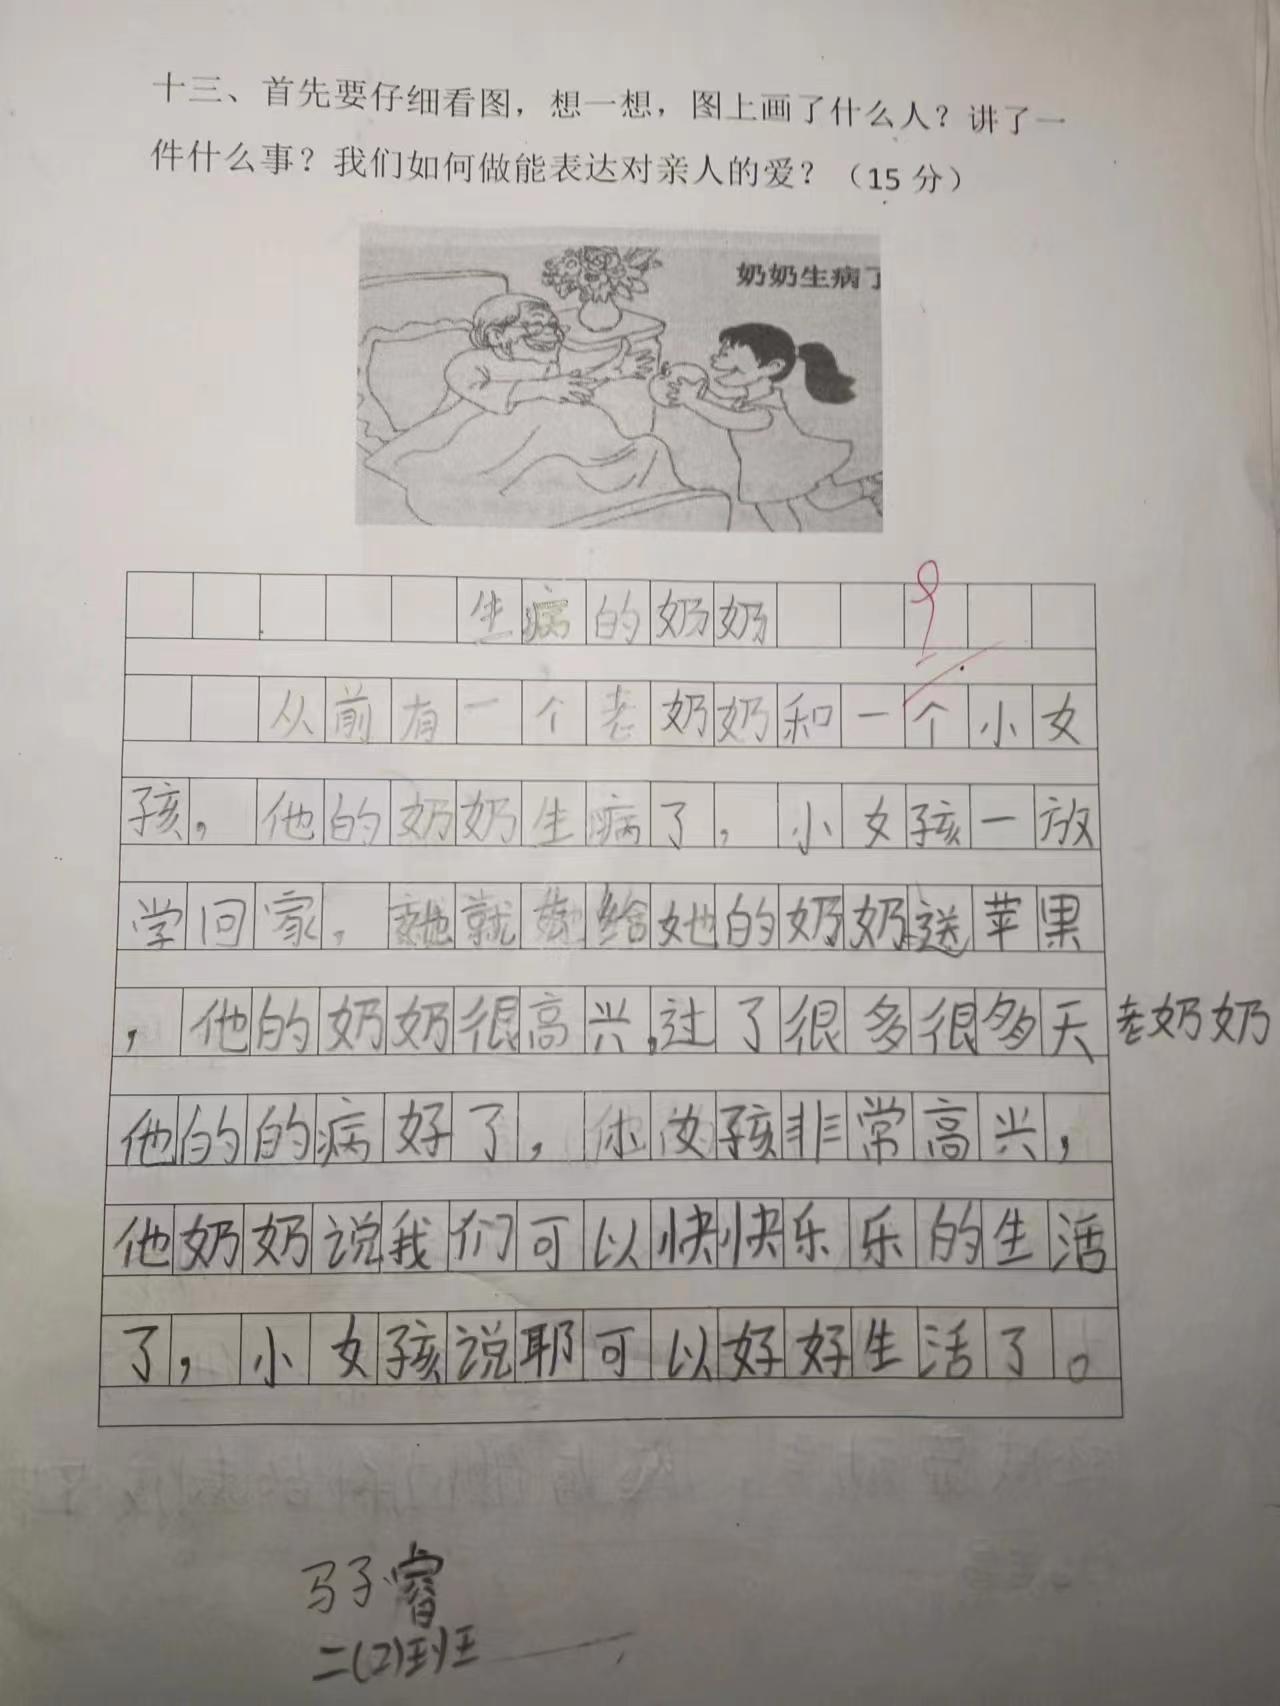 十三、首先要仔细看图，想一想，图上画了什么人？讲了一
件什么事？我们如何做能表达对亲人的爱？（15分）
奶奶生病了
生病的奶奶
9
从前有一个老奶奶和一个小女
孩，他的奶奶生病了，小女孩一放
学回家，她就给她的奶奶送苹果
，他的奶奶很高兴，过了很多很多天老奶奶
他的的病好了，小女孩非常高兴，
他奶奶说我们可以快快乐乐的生活
了，小女孩说耶可以好好生活了。
马子睿
二(2)班